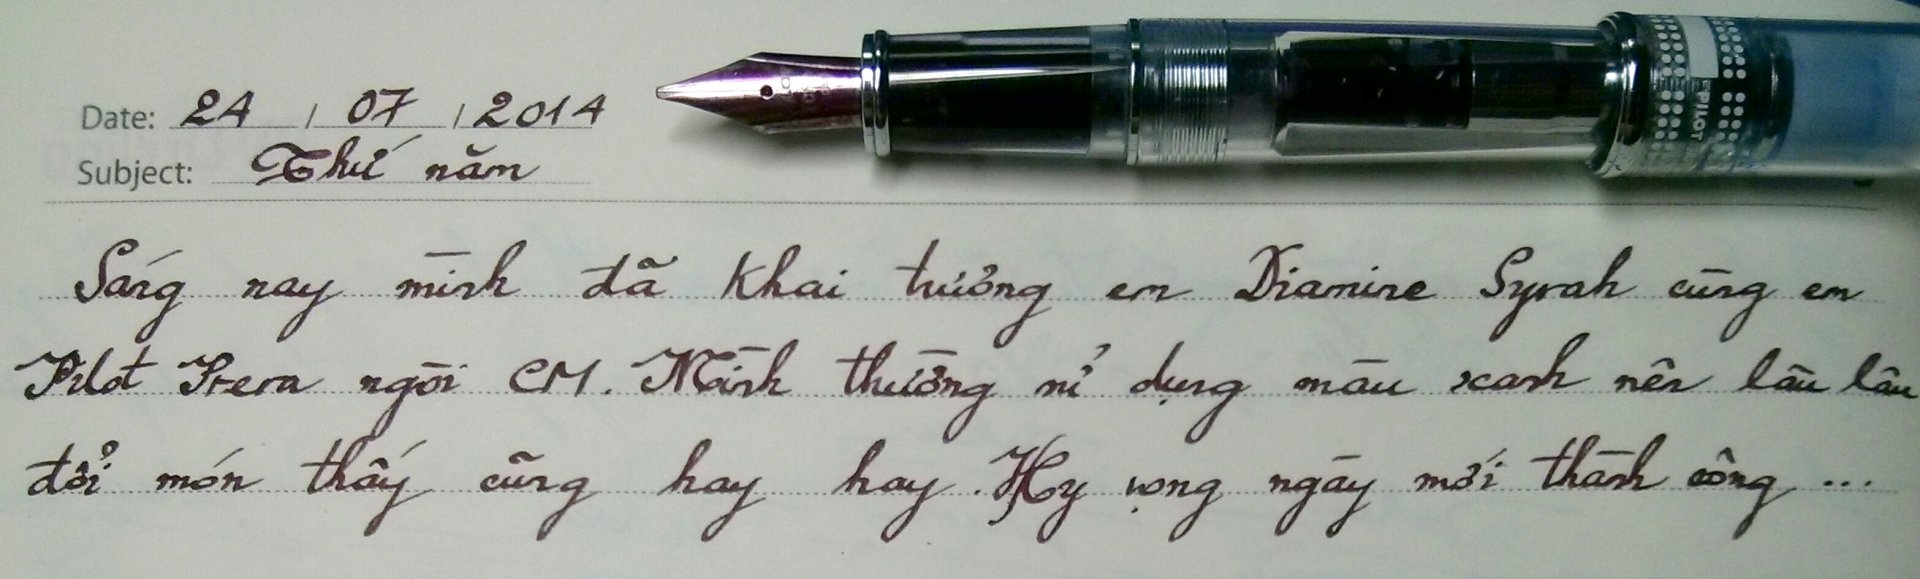 Date: 24 / 07 / 2014
Subject: Thứ năm
Sáng nay mình đã khai trương em Diamine Syrah cùng em
Pilot Prera ngòi CM. Mình thường chỉ dùng màu xanh nên lâu lâu
đổi món thấy cũng hay hay. Hy vọng ngày mới thành công ...
PILOT